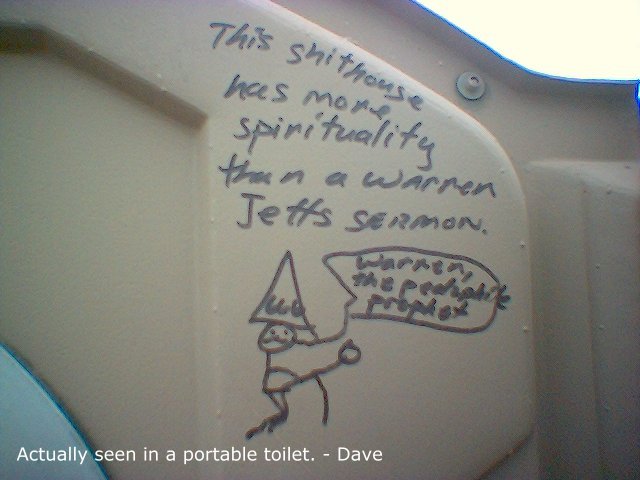 This shithouse
has more
spirituality
than a warren
Jeffs sermon.
warren,
the pedophile
prophet
Actually seen in a portable toilet. - Dave